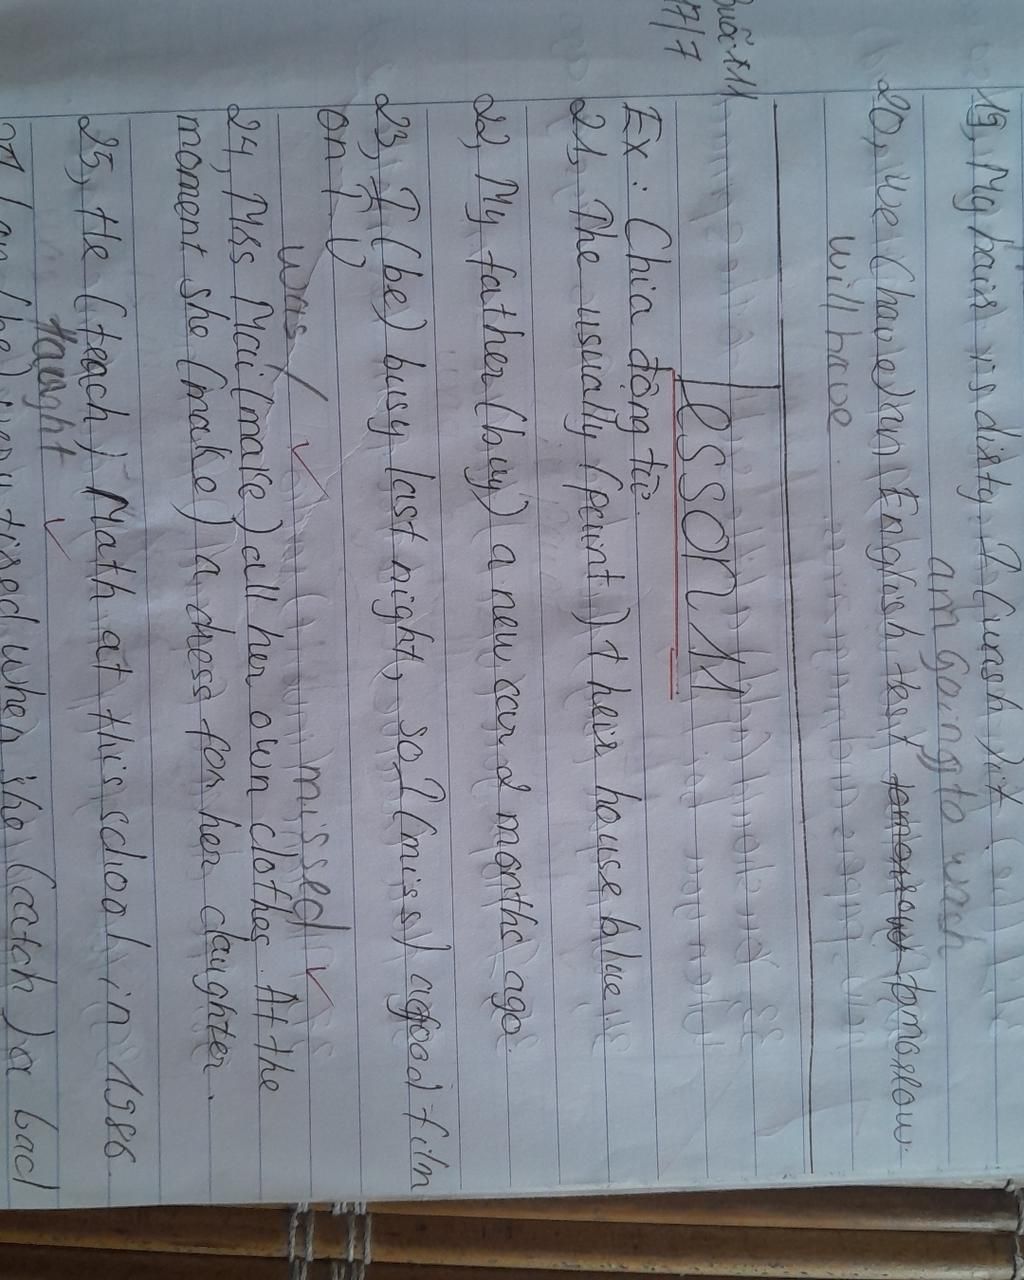 19, My hair is dirty. I (wash) it
am going to wash
20, We (have) an English test tomorrow tomorrow.
will have
Buổi 11
17/7
Lesson 11
Ex: Chia động từ.
21, The usually (paint) their house blue.
22, My father (buy) a new car 2 months ago.
23, I (be) busy last night, so I (miss) a good film
on TV
was / missed
24, Mss Mai (make) all her own clothes. At the
moment she (make) a dress for her daughter.
25, He (teach) Math at this school in 1986.
taught
(be) very tired when she (catch) a bad